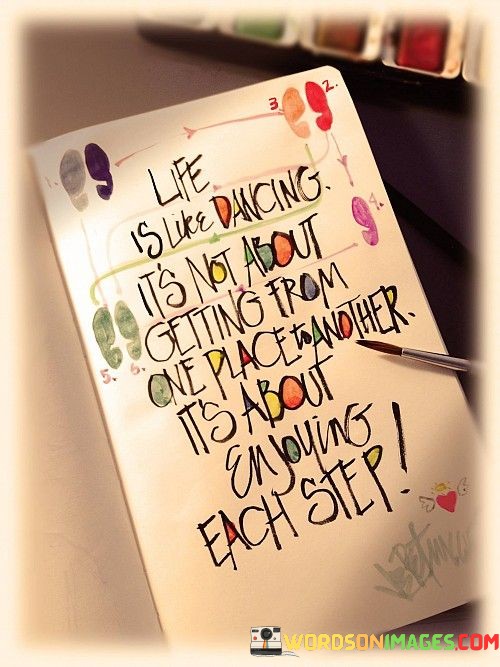 3.
2.
1.
LIFE
IS LIKE DANCING.
4.
IT'S NOT ABOUT
GETTING FROM
ONE PLACE to ANOTHER.
5.
6.
IT'S ABOUT
ENJOYING
EACH STEP!
WORDSONIMAGES.COM